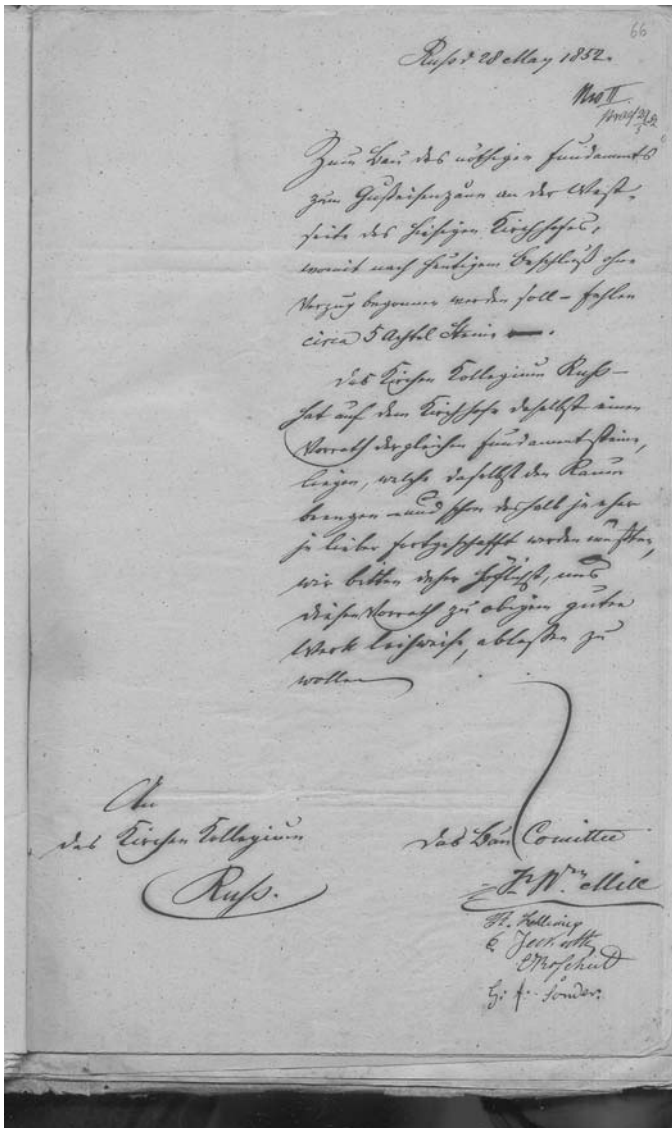 66
Russ d 28 May 1852.
Zum Bau des nöthigen Fundaments
zum Gußeisenzaun an der West-
seite des hiesigen Kirchhofes,
womit nach heutigem Beschluß ohne
Verzug begonnen werden soll – fehlen
circa 5 Achtel Steine
Das Kirchen Kollegium Russ –
hat auf dem Kirchhofe daselbst einen
Vorrath dergleichen Fundamentsteine,
liegen, welche daselbst den Raum
beengen und schon deshalb je eher
je lieber fortgeschafft werden müßten,
wir bitten daher höflichst, uns
diesen Vorrath zu obigem guten
Werk leihweise, ablassen zu
wollen
An
das Kirchen Kollegium
Russ.
Das Bau Comittee